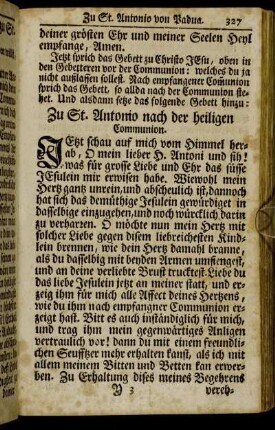 Zu St. Antonio von Padua. 327
deiner grösten Ehr und meiner Seelen Heyl
empfange, Amen.
Jetzt sprich das Gebett zu Christo JEsu, oben in
den Gebettern vor der Communion: welches du ja
nicht außlassen sollest. Nach empfangener Communion
sprich das Gebett, so allda nach der Communion ste-
het. Und alsdann setze das folgende Gebett hinzu:
Zu St. Antonio nach der heiligen
Communion.
JEtzt schau auf mich vom Himmel her-
ab, O mein lieber H. Antoni und sih!
was für grosse Liebe und Ehr das süsse
JEsulein mir erwisen habe. Wiewohl mein
Hertz gantz unrein, und abscheulich ist, dannoch
hat sich das demüthige Jesulein gewürdiget in
dasselbige einzugehen, und noch würcklich darin
zu verharren. O möchte nun mein Hertz mit
solcher Liebe gegen disem liebreichesten Kind-
lein brennen, wie dein Hertz damahl branne,
als du dasselbig mit beyden Armen umfiengest,
und an deine verliebte Brust trucktest. Liebe du
das liebe Jesulein jetzt an meiner statt, und er-
zeig ihm für mich alle Affect deines Hertzens,
wie du ihm nach empfangner Communion er-
zeigt hast. Bitt es auch inständiglich für mich,
und trag ihm mein gegenwärtiges Anligen
vertraulich vor! dann du mit einem freundli-
chen Seufftzer mehr erhalten kanst, als ich mit
allem meinem Bitten und Betten kan erwer-
ben. Zu Erhaltung dises meines Begehrens
Y 3 vereh-